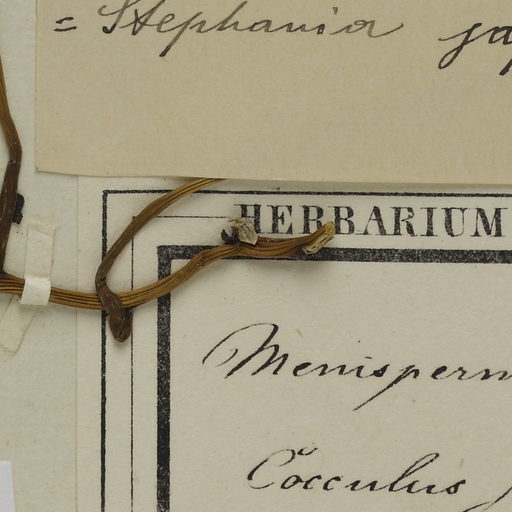 = Stephania jap
HERBARIUM
Menisperm
Cocculus j